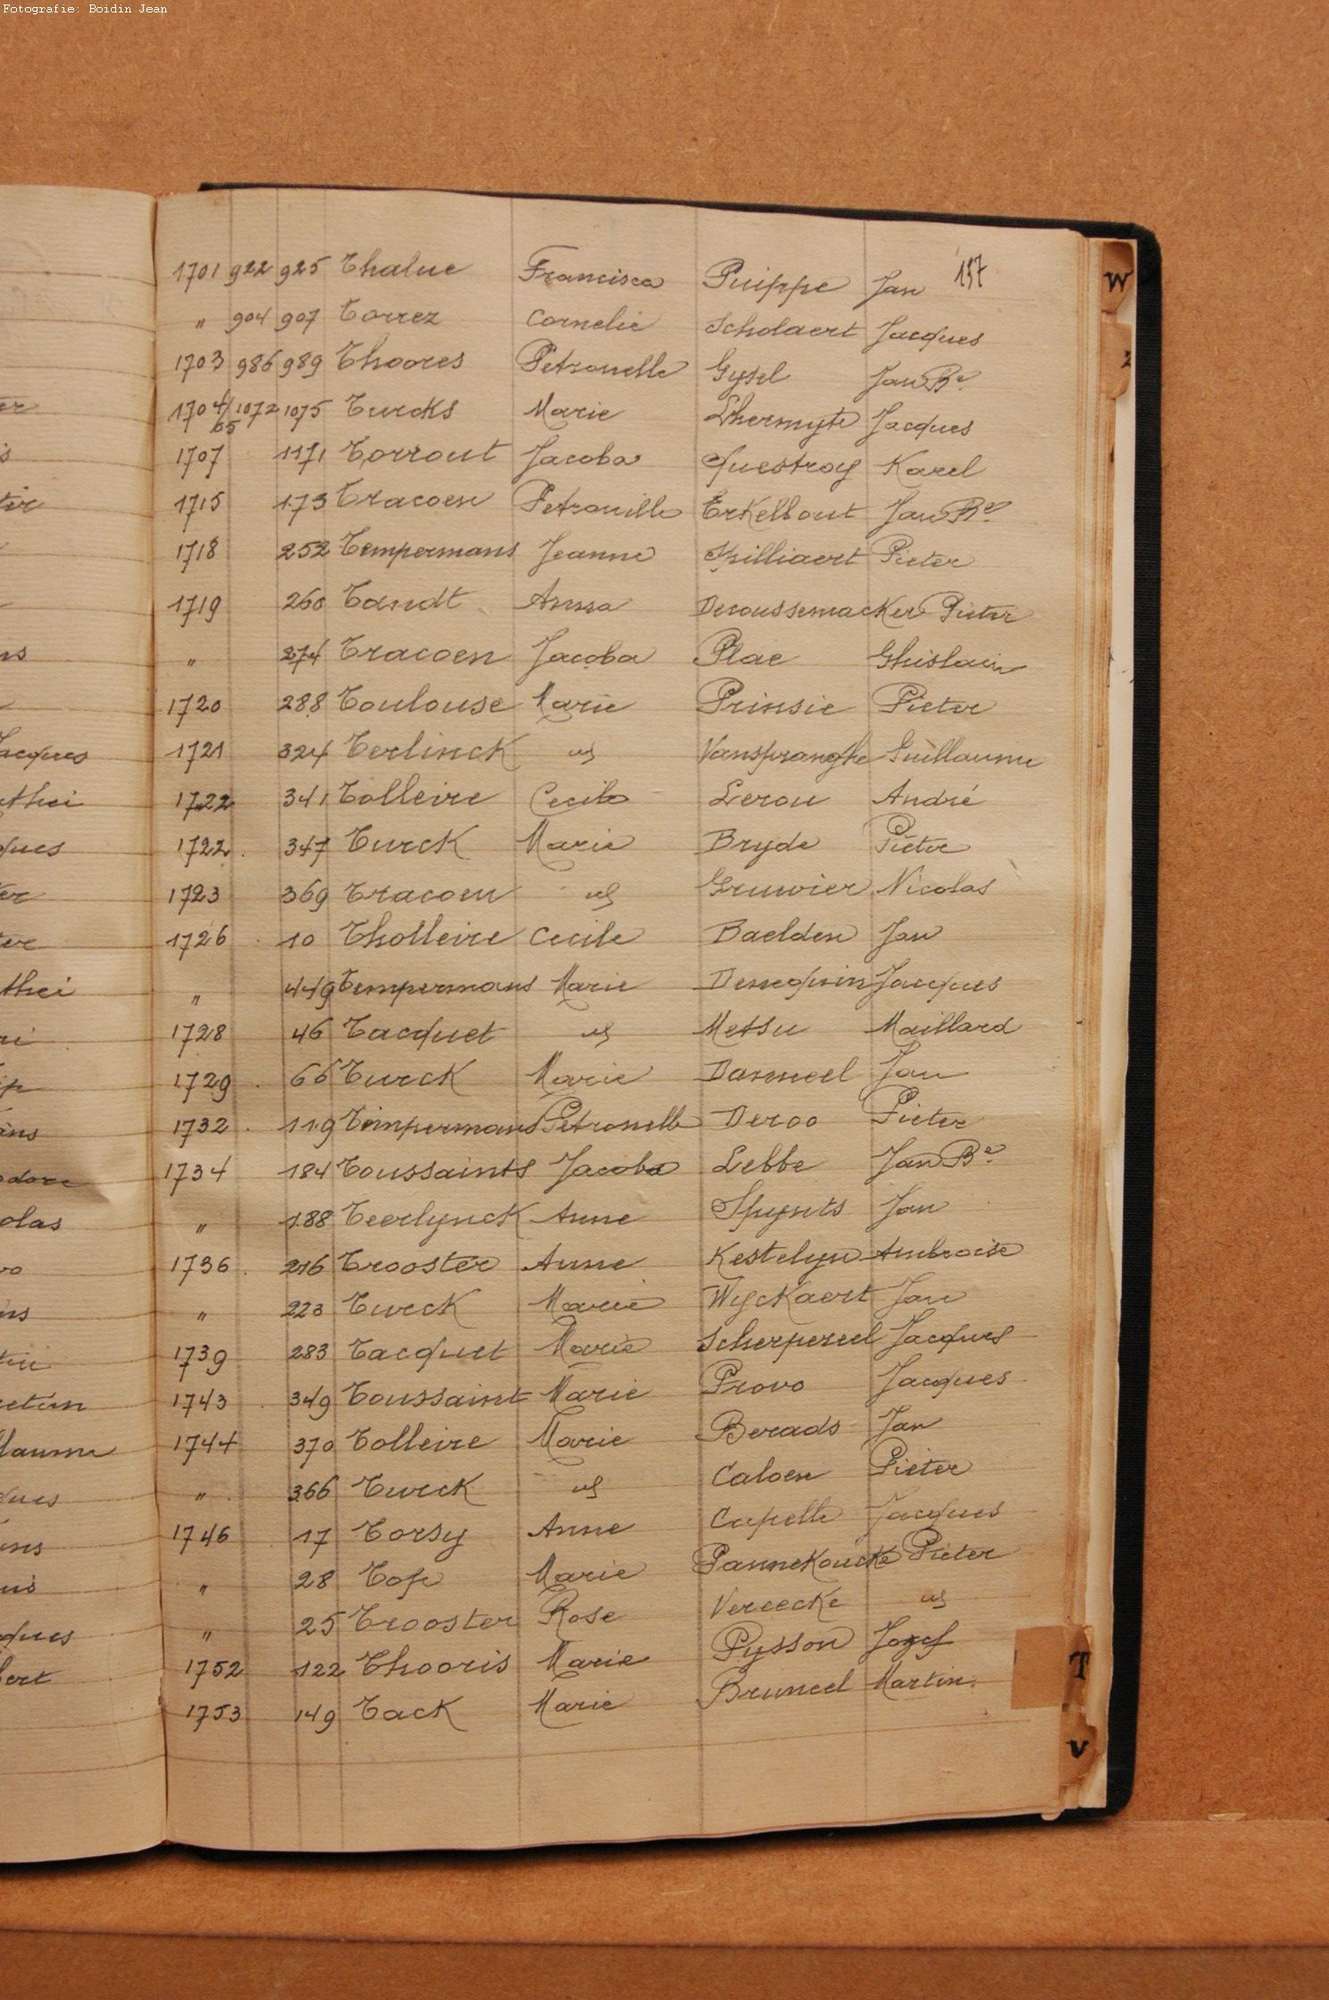 Fotografie: Boidin Jean
137
1701 922 925 Thaluc Francisca Puippe Jan
" 904 907 Torrez Cornelie Scholaert Jacques
1703 986 989 Thoores Petronelle Gysel Jan Bte
1704/05 1072 1075 Turcks Marie Lhermyte Jacques
1707 1171 Torrout Jacoba Questroy Karel
1715 173 Tracoen Petronille Erkelbout Jan Bte
1718 252 Tempermans Jeanne Spilliaert Pieter
1719 260 Tandt Anna Decoussemacker Pieter
" 274 Tracoen Jacoba Plae Ghislain
1720 288 Toulouse Marie Prinsie Pieter
1721 324 Terlinck id Vanspranghe Guillaume
1722 341 Tolleire Cecile Lerou André
1722 347 Turck Marie Bryde Pieter
1723 369 Tracoen id Gruwier Nicolas
1726 10 Tholleire Cecile Baelden Jan
" 449 Tempermans Marie Jacques
1728 46 Tacquet id Metsu Maillard
1729 66 Turck Marie Danneel Jan
1732 119 Timpermans Petronelle Deroo Pieter
1734 184 Toussaints Jacoba Lebbe Jan Bte
" 188 Teerlynck Anne Spynts Jan
1736 216 Trooster Anne Kestelyn Ambroise
" 223 Turck Marie Wyckaert Jan
1739 283 Tacquet Marie Scherpereel Jacques
1743 349 Toussaint Marie Provo Jacques
1744 370 Tolleire Marie Berads Jan
" 366 Turck id Caloen Pieter
1746 17 Torsy Anne Capelle Jacques
" 28 Top Marie Pannekoucke Pieter
" 25 Trooster Rose Vereecke id
1752 122 Thooris Marie Pysson Jozef
1753 149 Tack Marie Bruneel Martin
W
T
V